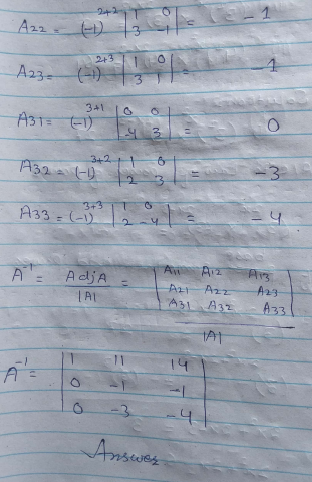 A22 = (-1)^2+2 | 1 0 | = -1
| 3 -1 |
A23 = (-1)^2+3 | 1 0 | = -1
| 3 1 |
A31 = (-1)^3+1 | 0 0 | = 0
| -4 3 |
A32 = (-1)^3+2 | 1 0 | = -3
| 2 3 |
A33 = (-1)^3+3 | 1 0 | = -4
| 2 -4 |
A^-1 = AdjA / |A| = | A11 A12 A13 |
| A21 A22 A23 |
| A31 A32 A33 |
|A|
A^-1 = | 1 11 14 |
| 0 -1 -1 |
| 0 -3 -4 |
Answer